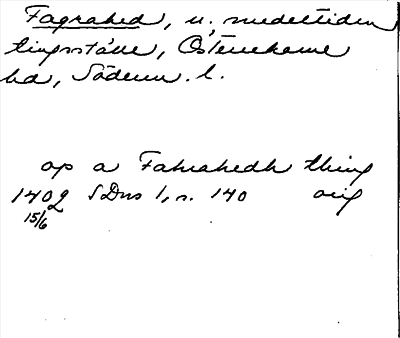 Fagrahed, u. medeltiden
tingsställe, Österrekarne
hd, Söderm. l.
op a Fahrahedh thing
1402 SDns 1, s. 140 orig
15/6